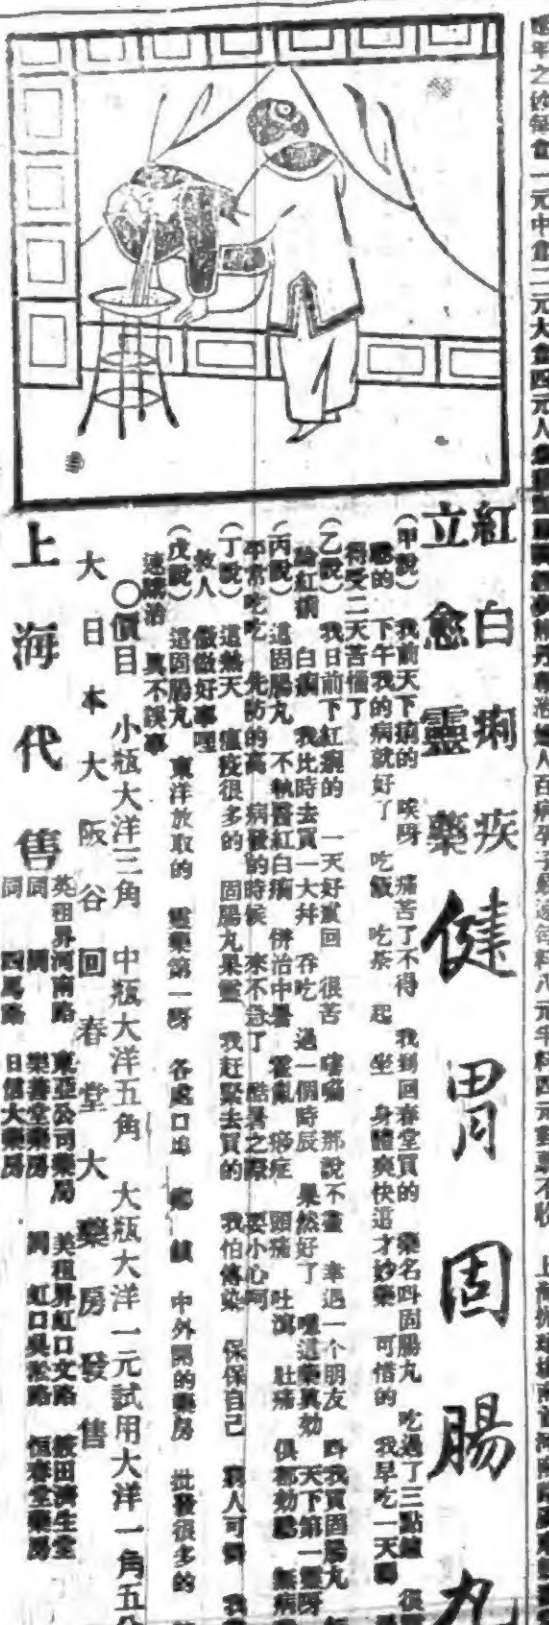 紅白痢疾
立愈靈藥
健胃固腸丸
(甲說) 我前天下痢的 唉呀 痛苦了不得 我到回春堂買的 藥名叫固腸丸 吃過了三點鐘 很
的 下午我的病就好了 吃飯 吃茶 起 坐 身體爽快這才妙藥 可惜的 我早吃一天
得受二天苦惱了
(乙說) 我日前下紅痢的 一天好數回 很苦 那說不盡 幸過一个朋友 叫我買固腸丸
論紅痢 白痢 我比時去買一大幷 吞吃 過一個時辰 果然好了 嗯這藥真効 天下第一靈呀
(丙說) 這固腸丸 不執醫紅白痢 併治中暑 霍亂 痧症 頭痛 吐瀉 肚痛 俱都効驗 無病
平常吃吃 先防的高 病發的時候 來不急了 酷暑之際 要小心呵
(丁說) 這熱天 瘟疫很多的 固腸丸果靈 我赶緊去買的 我怕傳染 保保自己 窮人可憐 我
救人 做做好事哩
(戊說) 這固腸丸 東洋放取的 靈藥第一呀 各處口埠 鄉 鎮 中外開的藥房 批發很多的
速購治 真不誤事
〇價目 小瓶大洋三角 中瓶大洋五角 大瓶大洋一元試用大洋一角五分
大日本大阪谷回春堂大藥房發售
上海代售
英租界河南路 東亞公司藥局 美租界虹口文路 濟生堂
同 同 樂善堂藥房 同 虹口吳淞路 恒春堂藥房
同 四馬路 日信大藥房